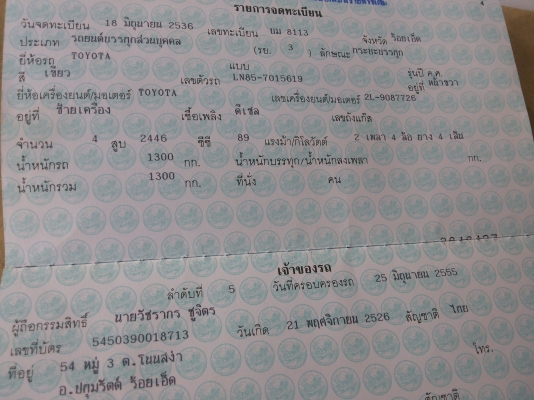 รายการจดทะเบียน
วันจดทะเบียน 18 มิถุนายน 2536 เลขทะเบียน บม 8113 จังหวัด ร้อยเอ็ด
ประเภท รถยนต์บรรทุกส่วนบุคคล (รย. 3 ) ลักษณะ กระบะบรรทุก
ยี่ห้อรถ TOYOTA แบบ รุ่นปี ค.ศ.
สี เขียว เลขตัวรถ LN85-7015619 อยู่ที่ หน้าขวา
ยี่ห้อเครื่องยนต์/มอเตอร์ TOYOTA เลขเครื่องยนต์/มอเตอร์ 2L-9087726
อยู่ที่ ซ้ายเครื่อง เชื้อเพลิง ดีเซล เลขถังแก๊ส
จำนวน 4 สูบ 2446 ซีซี 89 แรงม้า/กิโลวัตต์ 2 เพลา 4 ล้อ ยาง 4 เส้น
น้ำหนักรถ 1300 กก. น้ำหนักบรรทุก/น้ำหนักลงเพลา กก.
น้ำหนักรวม 1300 กก. ที่นั่ง คน
เจ้าของรถ
ลำดับที่ 5 วันที่ครอบครองรถ 25 มิถุนายน 2555
ผู้ถือกรรมสิทธิ์ นายวัชรากร ชูจิตร
เลขที่บัตร 5450390018713 วันเกิด 21 พฤศจิกายน 2526 สัญชาติ ไทย
ที่อยู่ 54 หมู่ 3 ต.โนนสง่า โทร.
อ.ปทุมรัตต์ ร้อยเอ็ด
สัญชาติ